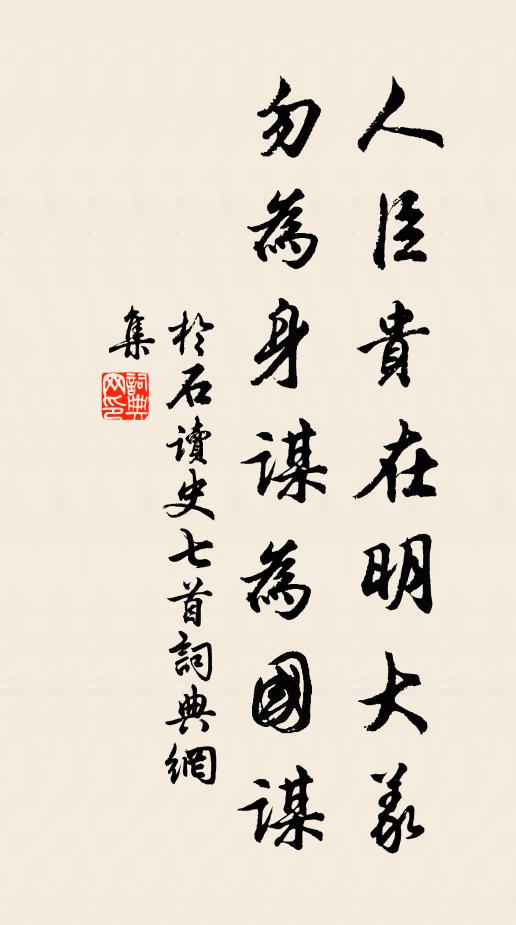 人臣貴在明大義
勿為身謀為國謀
於石讀史七首詞典網
集
詞典網印